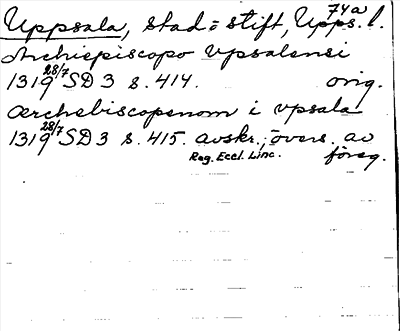 74a
Uppsala, stad o stift, Upps. l.
Archiepiscopo Vpsalensi
1319 28/7 SD 3 s. 414. orig.
ærchebiscopenom i vpsala
1319 28/7 SD 3 s. 415. avskr.; övers. av
Reg. Eccl. Linc. föreg.